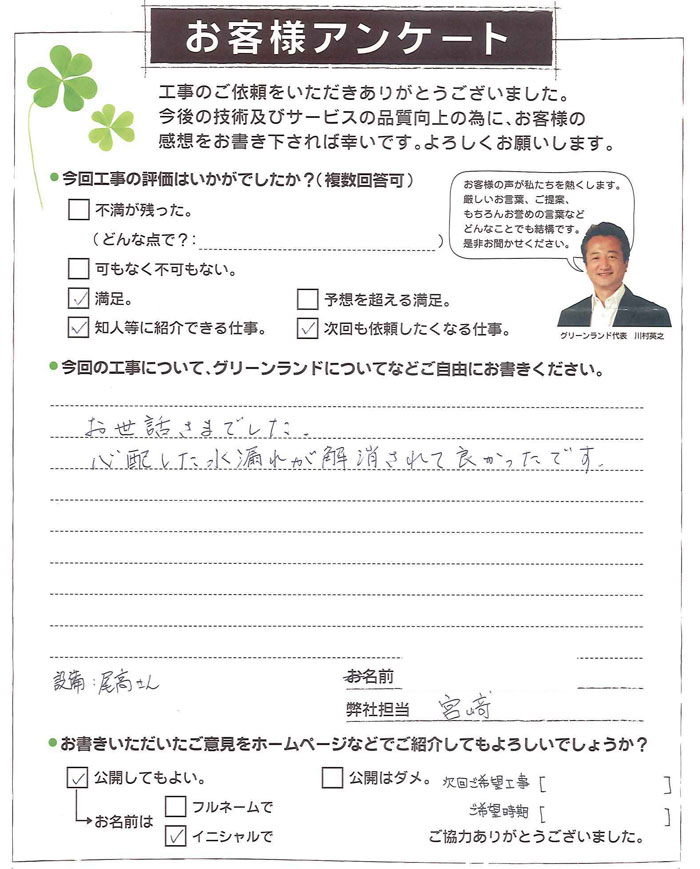 お客様アンケート
工事のご依頼をいただきありがとうございました。
今後の技術及びサービスの品質向上の為に、お客様の
感想をお書き下されば幸いです。よろしくお願いします。
●今回工事の評価はいかがでしたか？（複数回答可）
□ 不満が残った。
（どんな点で？：　　　　）
□ 可もなく不可もない。
☑ 満足。
□ 予想を超える満足。
☑ 知人等に紹介できる仕事。
☑ 次回も依頼したくなる仕事。
お客様の声が私たちを熱くします。
厳しいお言葉、ご提案、
もちろんお誉めの言葉など
どんなことでも結構です。
是非お聞かせください。
グリーンランド代表　川村英之
●今回の工事について、グリーンランドについてなどご自由にお書きください。
お世話さまでした.
心配した水漏れが解消されて良かったです.
設備：尾高さん
お名前
弊社担当　宮﨑
●お書きいただいたご意見をホームページなどでご紹介してもよろしいでしょうか？
☑ 公開してもよい。
□ 公開はダメ。
→お名前は
□ フルネームで
☑ イニシャルで
次回ご希望工事［　　　］
ご希望時期［　　　］
ご協力ありがとうございました。